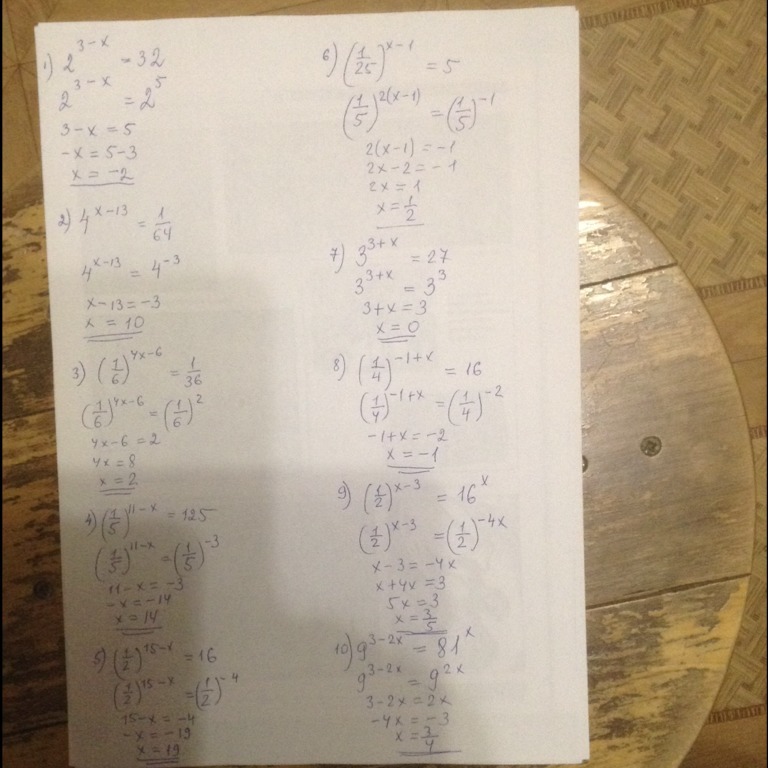 1) 2^(3-x) = 32
2^(3-x) = 2^5
3-x = 5
-x = 5-3
x = -2
2) 4^(x-13) = 1/64
4^(x-13) = 4^(-3)
x-13 = -3
x = 10
3) (1/6)^(4x-6) = 1/36
(1/6)^(4x-6) = (1/6)^2
4x-6 = 2
4x = 8
x = 2
4) (1/5)^(11-x) = 125
(1/5)^(11-x) = (1/5)^(-3)
11-x = -3
-x = -14
x = 14
5) (1/2)^(15-x) = 16
(1/2)^(15-x) = (1/2)^(-4)
15-x = -4
-x = -19
x = 19
6) (1/25)^(x-1) = 5
(1/5)^(2(x-1)) = (1/5)^(-1)
2(x-1) = -1
2x-2 = -1
2x = 1
x = 1/2
7) 3^(3+x) = 27
3^(3+x) = 3^3
3+x = 3
x = 0
8) (1/4)^(-1+x) = 16
(1/4)^(-1+x) = (1/4)^(-2)
-1+x = -2
x = -1
9) (1/2)^(x-3) = 16^x
(1/2)^(x-3) = (1/2)^(-4x)
x-3 = -4x
x+4x = 3
5x = 3
x = 3/5
10) 9^(3-2x) = 81^x
9^(3-2x) = 9^(2x)
3-2x = 2x
-4x = -3
x = 3/4